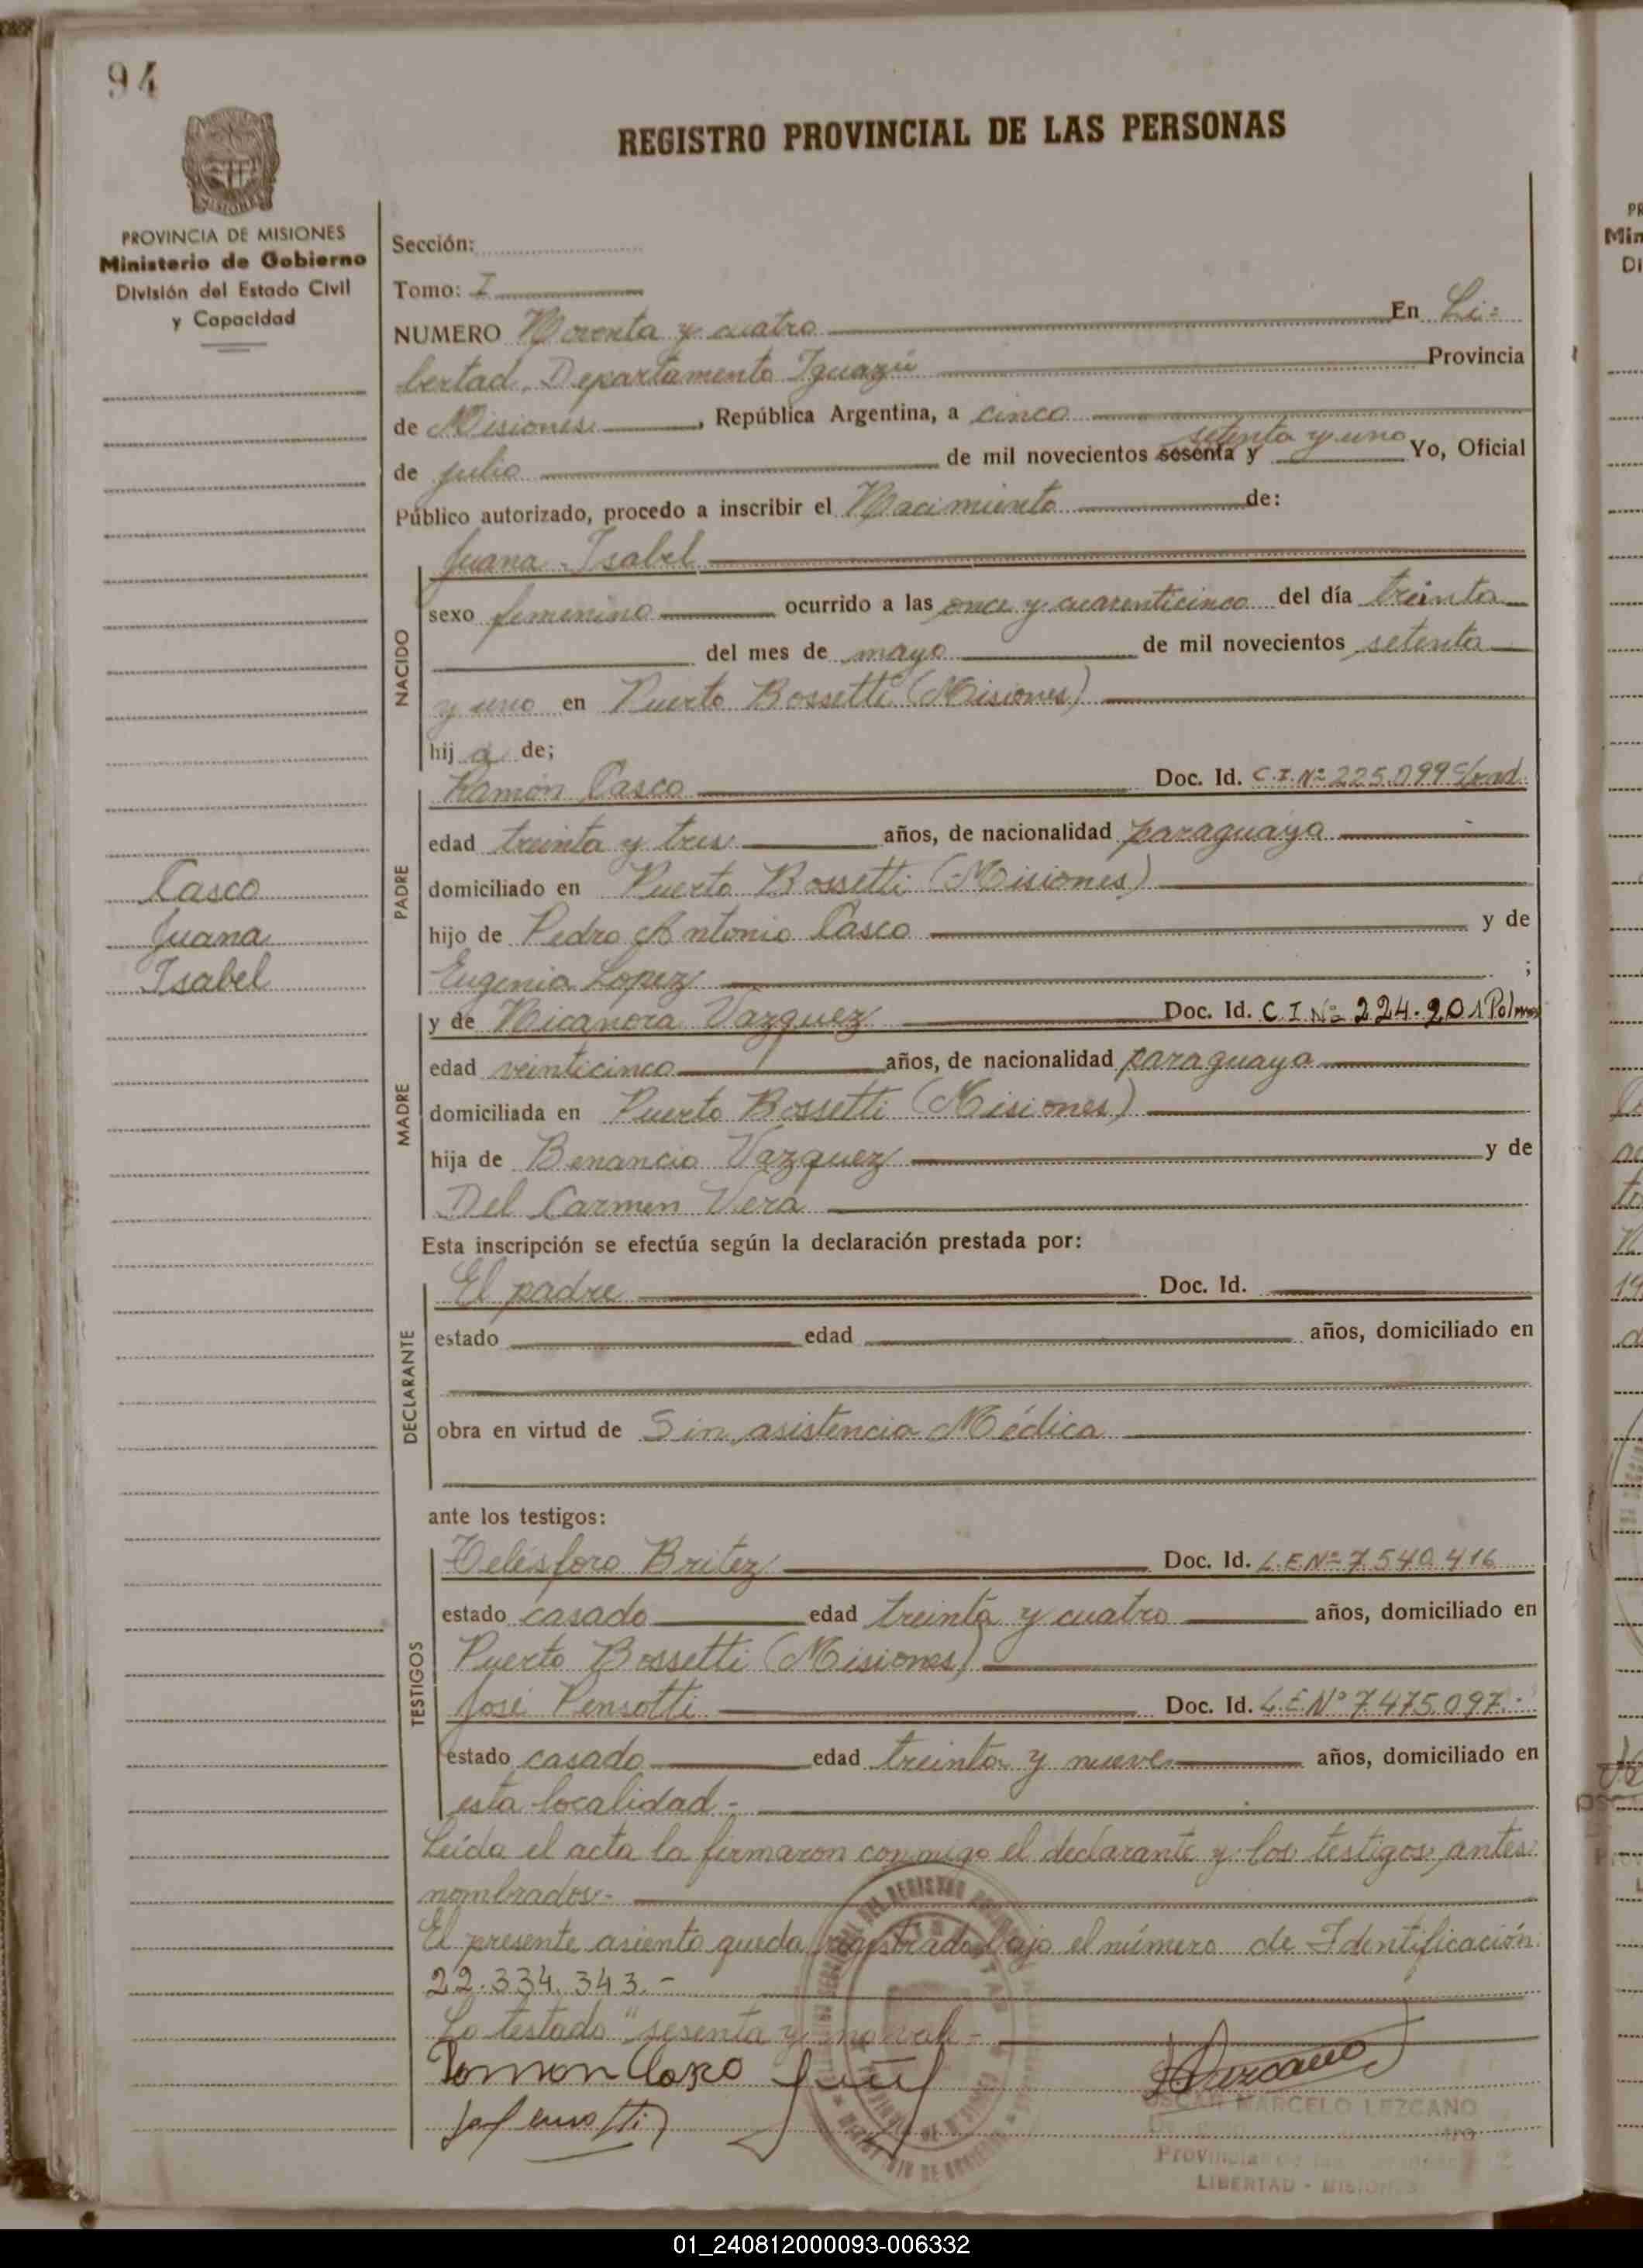 94
REGISTRO PROVINCIAL DE LAS PERSONAS
MISIONES
PROVINCIA DE MISIONES
Ministerio de Gobierno
División del Estado Civil
y Capacidad
Casco
Juana
Isabel
Sección:
Tomo: I
NUMERO Noventa y cuatro En Li=
bertad, Departamento Iguazú Provincia
de Misiones, República Argentina, a cinco
setenta y uno
de julio de mil novecientos sesenta y Yo, Oficial
Público autorizado, procedo a inscribir el Nacimiento de:
NACIDO
Juana Isabel
sexo femenino ocurrido a las once y cuarenticinco del día treinta
del mes de mayo de mil novecientos setenta
y uno en Puerto Bossetti (Misiones)
hij a de;
PADRE
Ramón Casco Doc. Id. C.I.Nº 225.099
edad treinta y tres años, de nacionalidad paraguaya
domiciliado en Puerto Bossetti (Misiones)
hijo de Pedro Antonio Casco y de
Eugenia Lopez ;
MADRE
y de Nicanora Vazquez Doc. Id. C.I.Nº 224.201 Pol mnes
edad veinticinco años, de nacionalidad paraguaya
domiciliada en Puerto Bossetti (Misiones)
hija de Benancio Vazquez y de
Del Carmen Vera
Esta inscripción se efectúa según la declaración prestada por:
DECLARANTE
El padre Doc. Id.
estado edad años, domiciliado en
obra en virtud de Sin asistencia Médica
ante los testigos:
TESTIGOS
Telésforo Britez Doc. Id. L.E.Nº 7.540.416
estado casado edad treinta y cuatro años, domiciliado en
Puerto Bossetti (Misiones)
José Pensotti Doc. Id. L.E.Nº 7.475.097.-
estado casado edad treinta y nueve años, domiciliado en
esta localidad.-
Leída el acta la firmaron conmigo el declarante y los testigos antes
nombrados.-
El presente asiento queda registrado bajo el número de Identificación
22.334.343.-
Lo testado "sesenta y" no vale-
Ramon Casco
OSCAR MARCELO LEZCANO
LIBERTAD - MISIONES
01_240812000093-006332